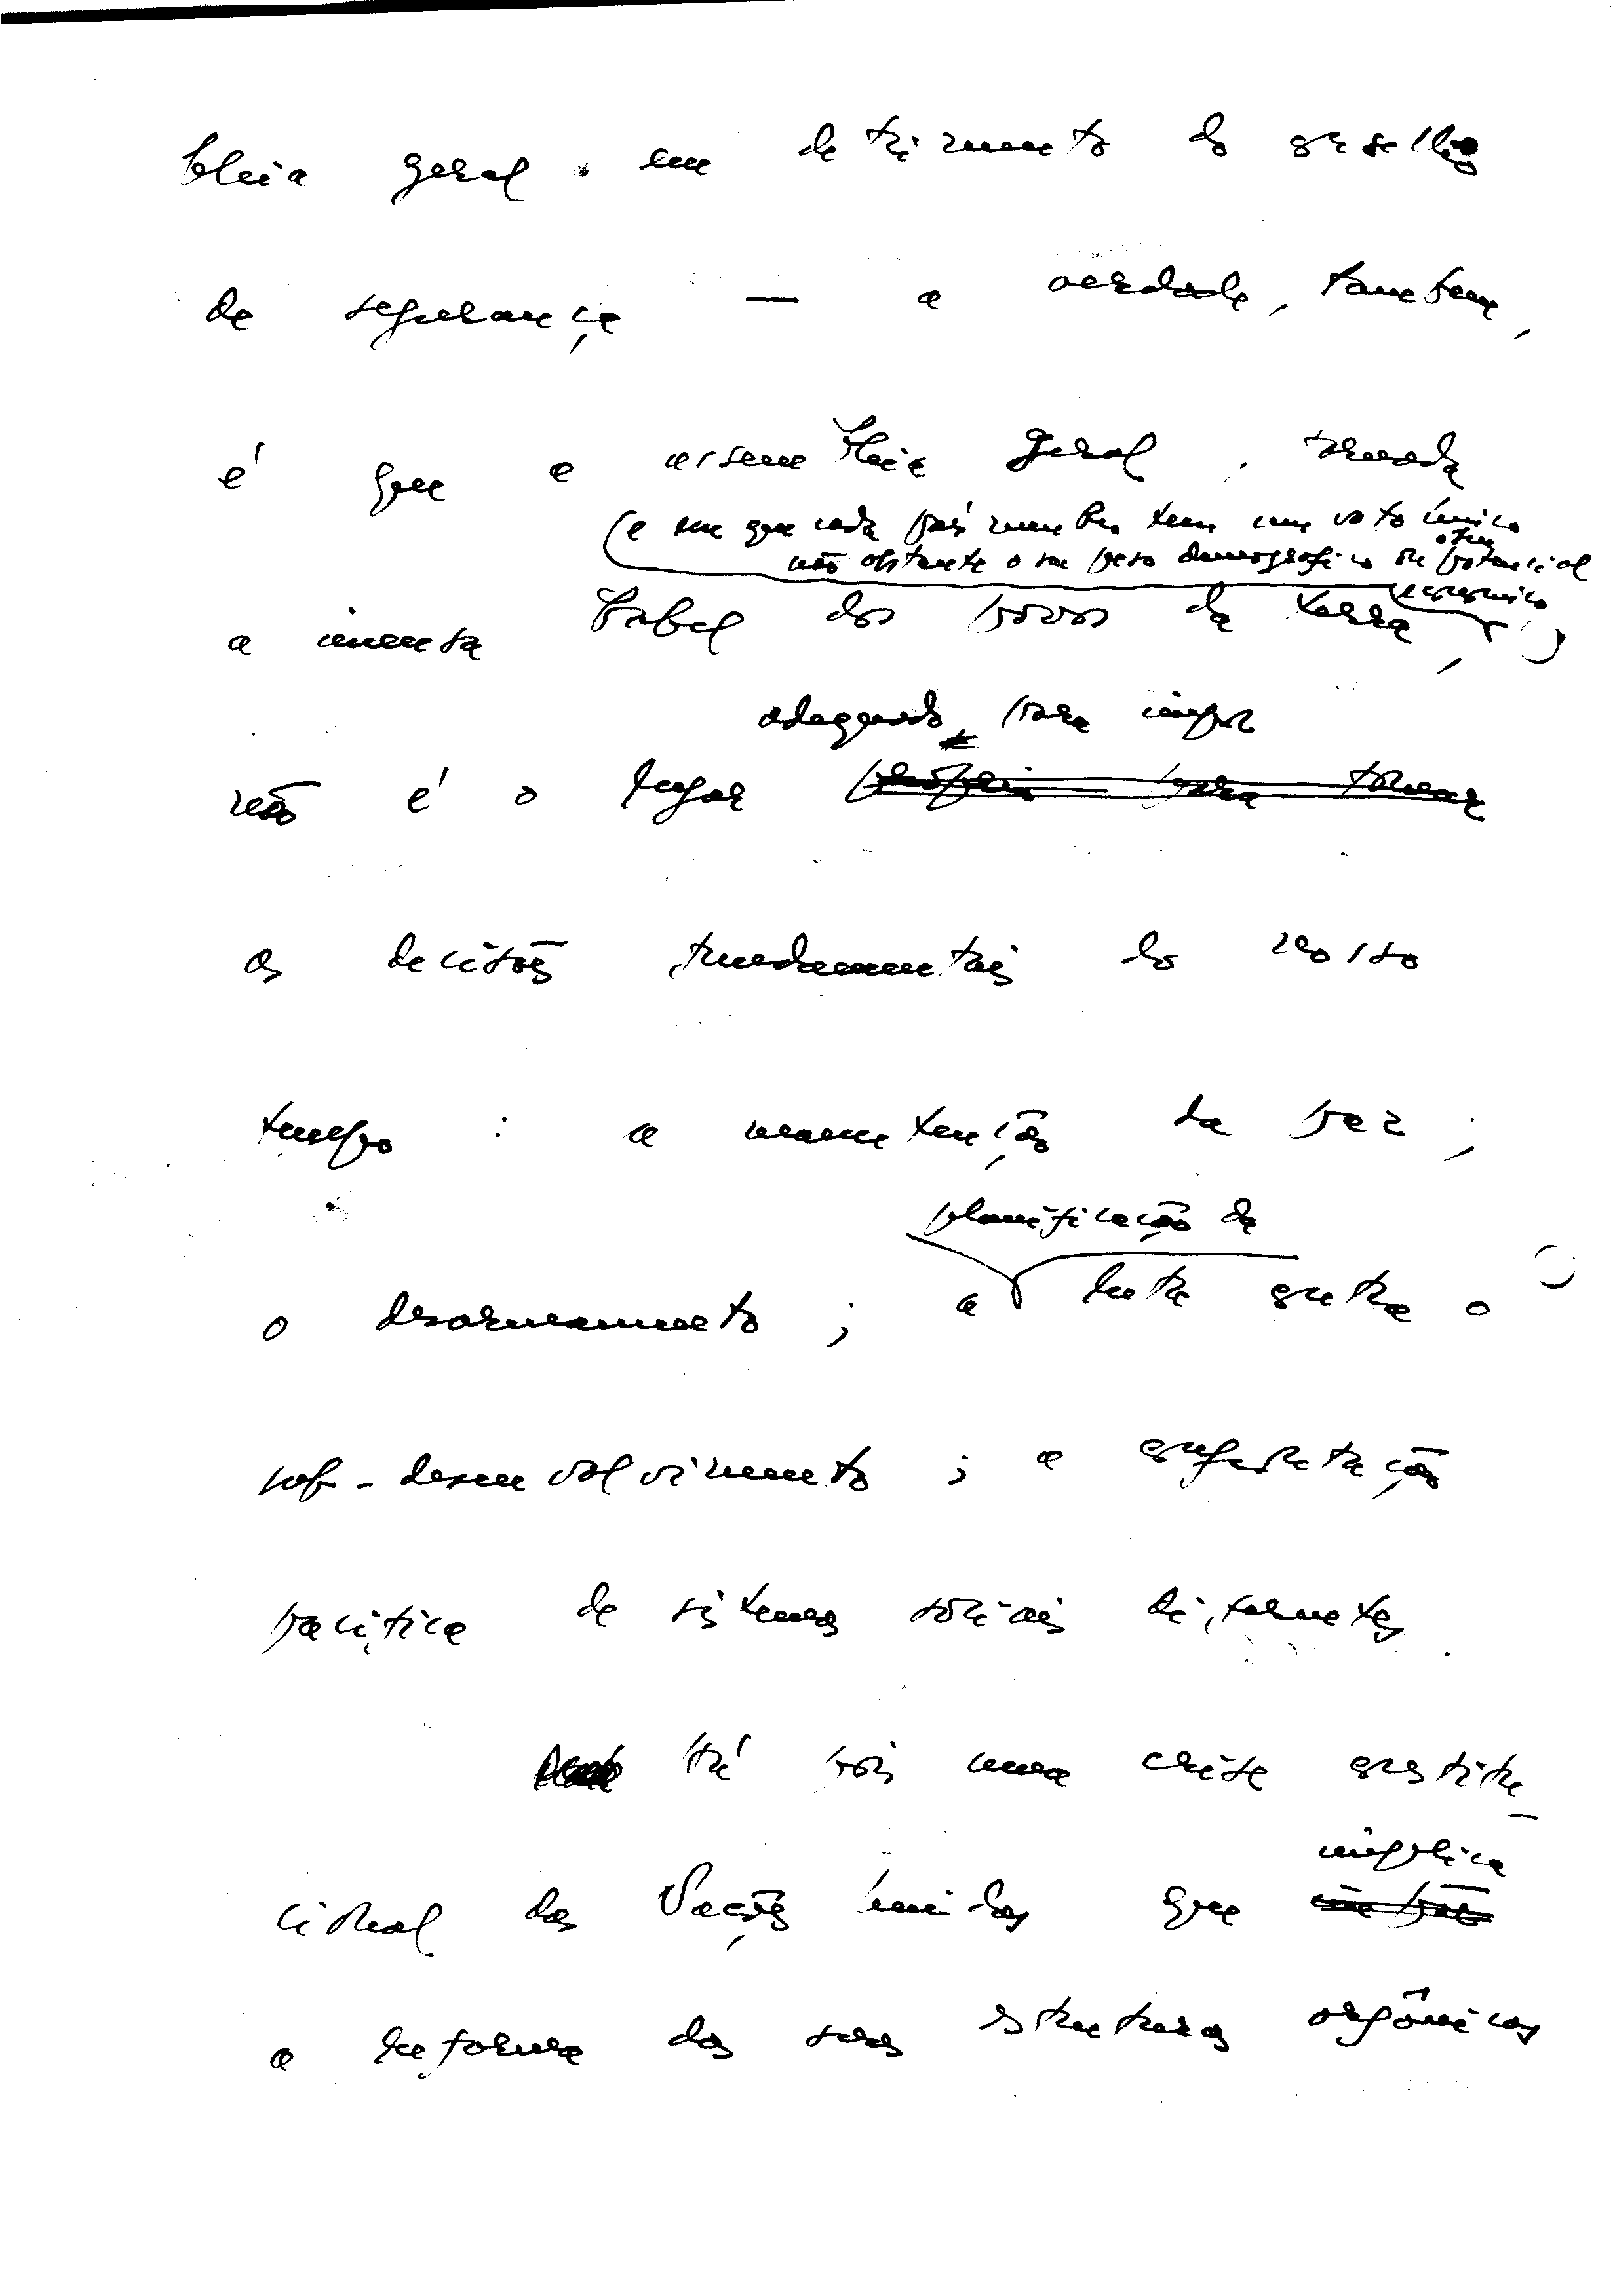 bleia geral em detrimento do conselho
de segurança — a verdade, também,
é que a assembleia geral, tornada
(e em que cada país membro tem um voto único
não obstante o seu peso demográfico ou potencial
económico)
a imensa Babel dos povos da terra,
adequado para impor
não é o lugar propício para tomar
as decisões fundamentais do nosso
tempo : a manutenção da paz ;
planificação da
o desarmamento ; a luta contra o
sub-desenvolvimento ; a
pacífica de sistemas sociais diferentes.
há pois uma crise constitu-
implica
cional das Nações Unidas que impõe
a reforma das suas estruturas orgânicas